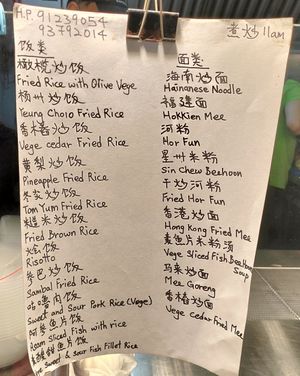 H.P. 91239054
93792014
煮炒 11am
饭类
橄榄炒饭
Fried Rice with Olive Vege
杨州炒饭
Yeung Chow Fried Rice
香椿炒饭
Vege cedar Fried Rice
黄梨炒饭
Pineapple Fried Rice
冬炎炒饭
Tom Yum Fried Rice
糙米炒饭
Fried Brown Rice
烩饭
Risotto
叁巴炒饭
Sambal Fried Rice
咕噜肉饭
Sweet and Sour Pork Rice (Vege)
阿参鱼片饭
Asam Sliced Fish with rice
酸甜鱼片饭
Sweet & Sour Fish Fillet Rice
面类
海南炒面
Hainanese Noodle
福建面
Hokkien Mee
河粉
Hor Fun
星州米粉
Sin Chew Beehoon
干炒河粉
Fried Hor Fun
香港炒面
Hong Kong Fried Mee
素鱼片米粉汤
Vege Sliced Fish Beehoon
Soup
马来炒面
Mee Goreng
香椿炒面
Vege cedar Fried Mee